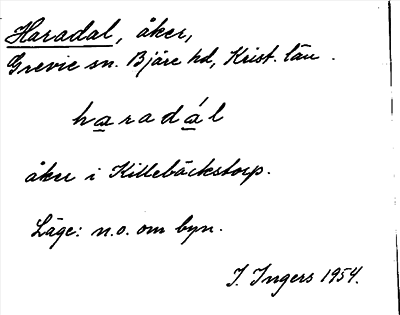 Haradal, åker,
Grevie sn. Bjäre hd, Krist. län.
haradál
åker i Killebäckstorp.
Läge: n.o. om byn.
I. Ingers 1954.